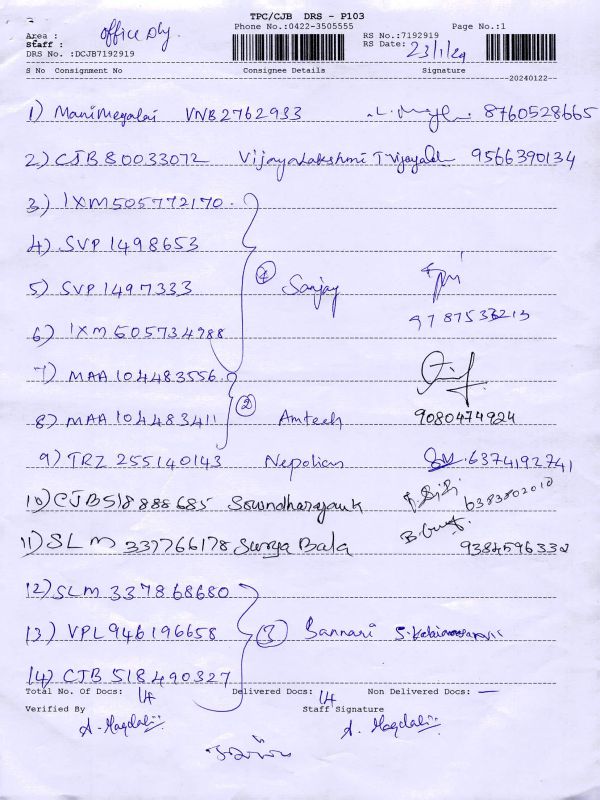 TPC/CJB DRS - P103
Phone No.:0422-3505555 Page No.:1
Area : office Dly.
Staff :
RS No.:7192919
RS Date: 23/1/24
DRS No. :DCJB7192919
S No Consignment No Consignee Details Signature
20240122
1) Manimegalai VNB2762933 8760528665
2) CJB80033072 Vijayalakshmi T 9566390134
3) IXM505772170.
4) SVP1498653
5) SVP1497333 Sanjay
6) IXM505734988
7) MAA104483556.
② 
8) MAA104483411 Amtech 9080474924
9) TRZ 255140143 Nepolian 6374192741
10) CJB518888685 6383802010
11) SLM 337766178 Surya Bala 9384596332
12) SLM 337868680
13) VPL946196658 ③ Bannari
14) CJB 518490327
Total No. Of Docs: 14 Delivered Docs: 14 Non Delivered Docs: —
Verified By Staff Signature
A. Magdali A. Magdali